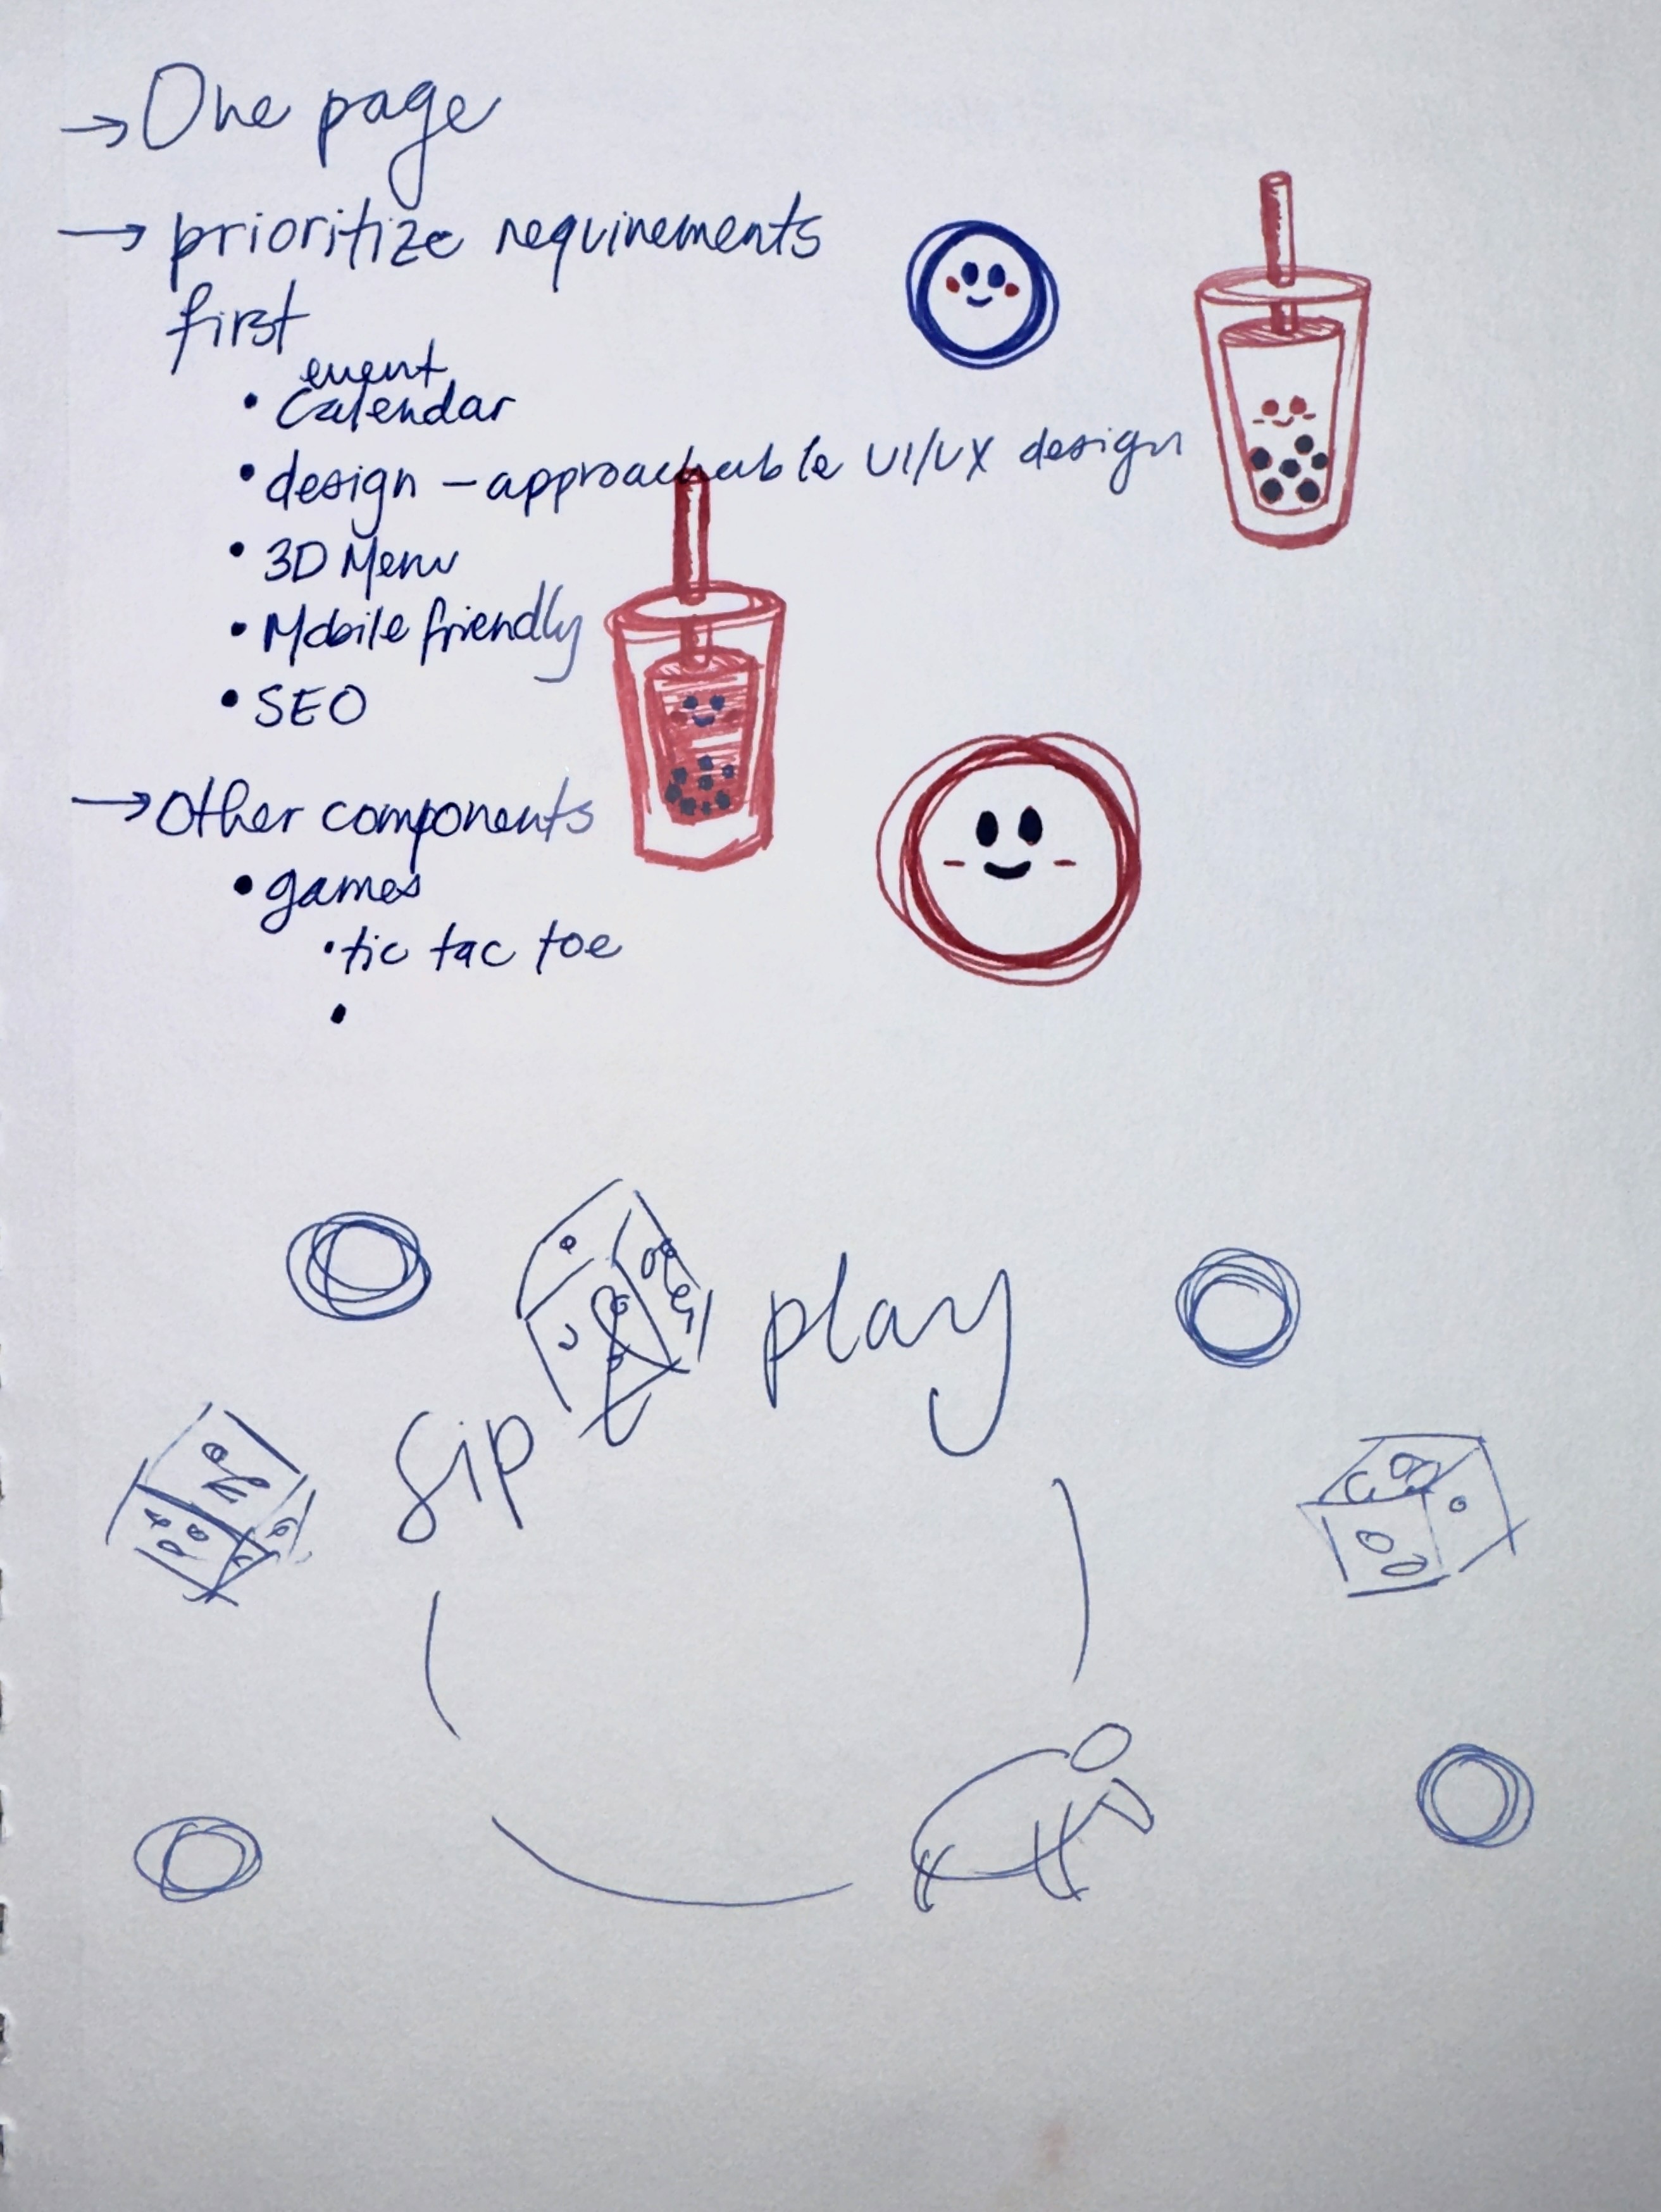 → One page
→ prioritize requirements
first
event
• Calendar
• design - approachable UI/UX design
• 3D Menu
• Mobile friendly
• SEO
→ Other components
• games
• tic tac toe
•
Sip & play